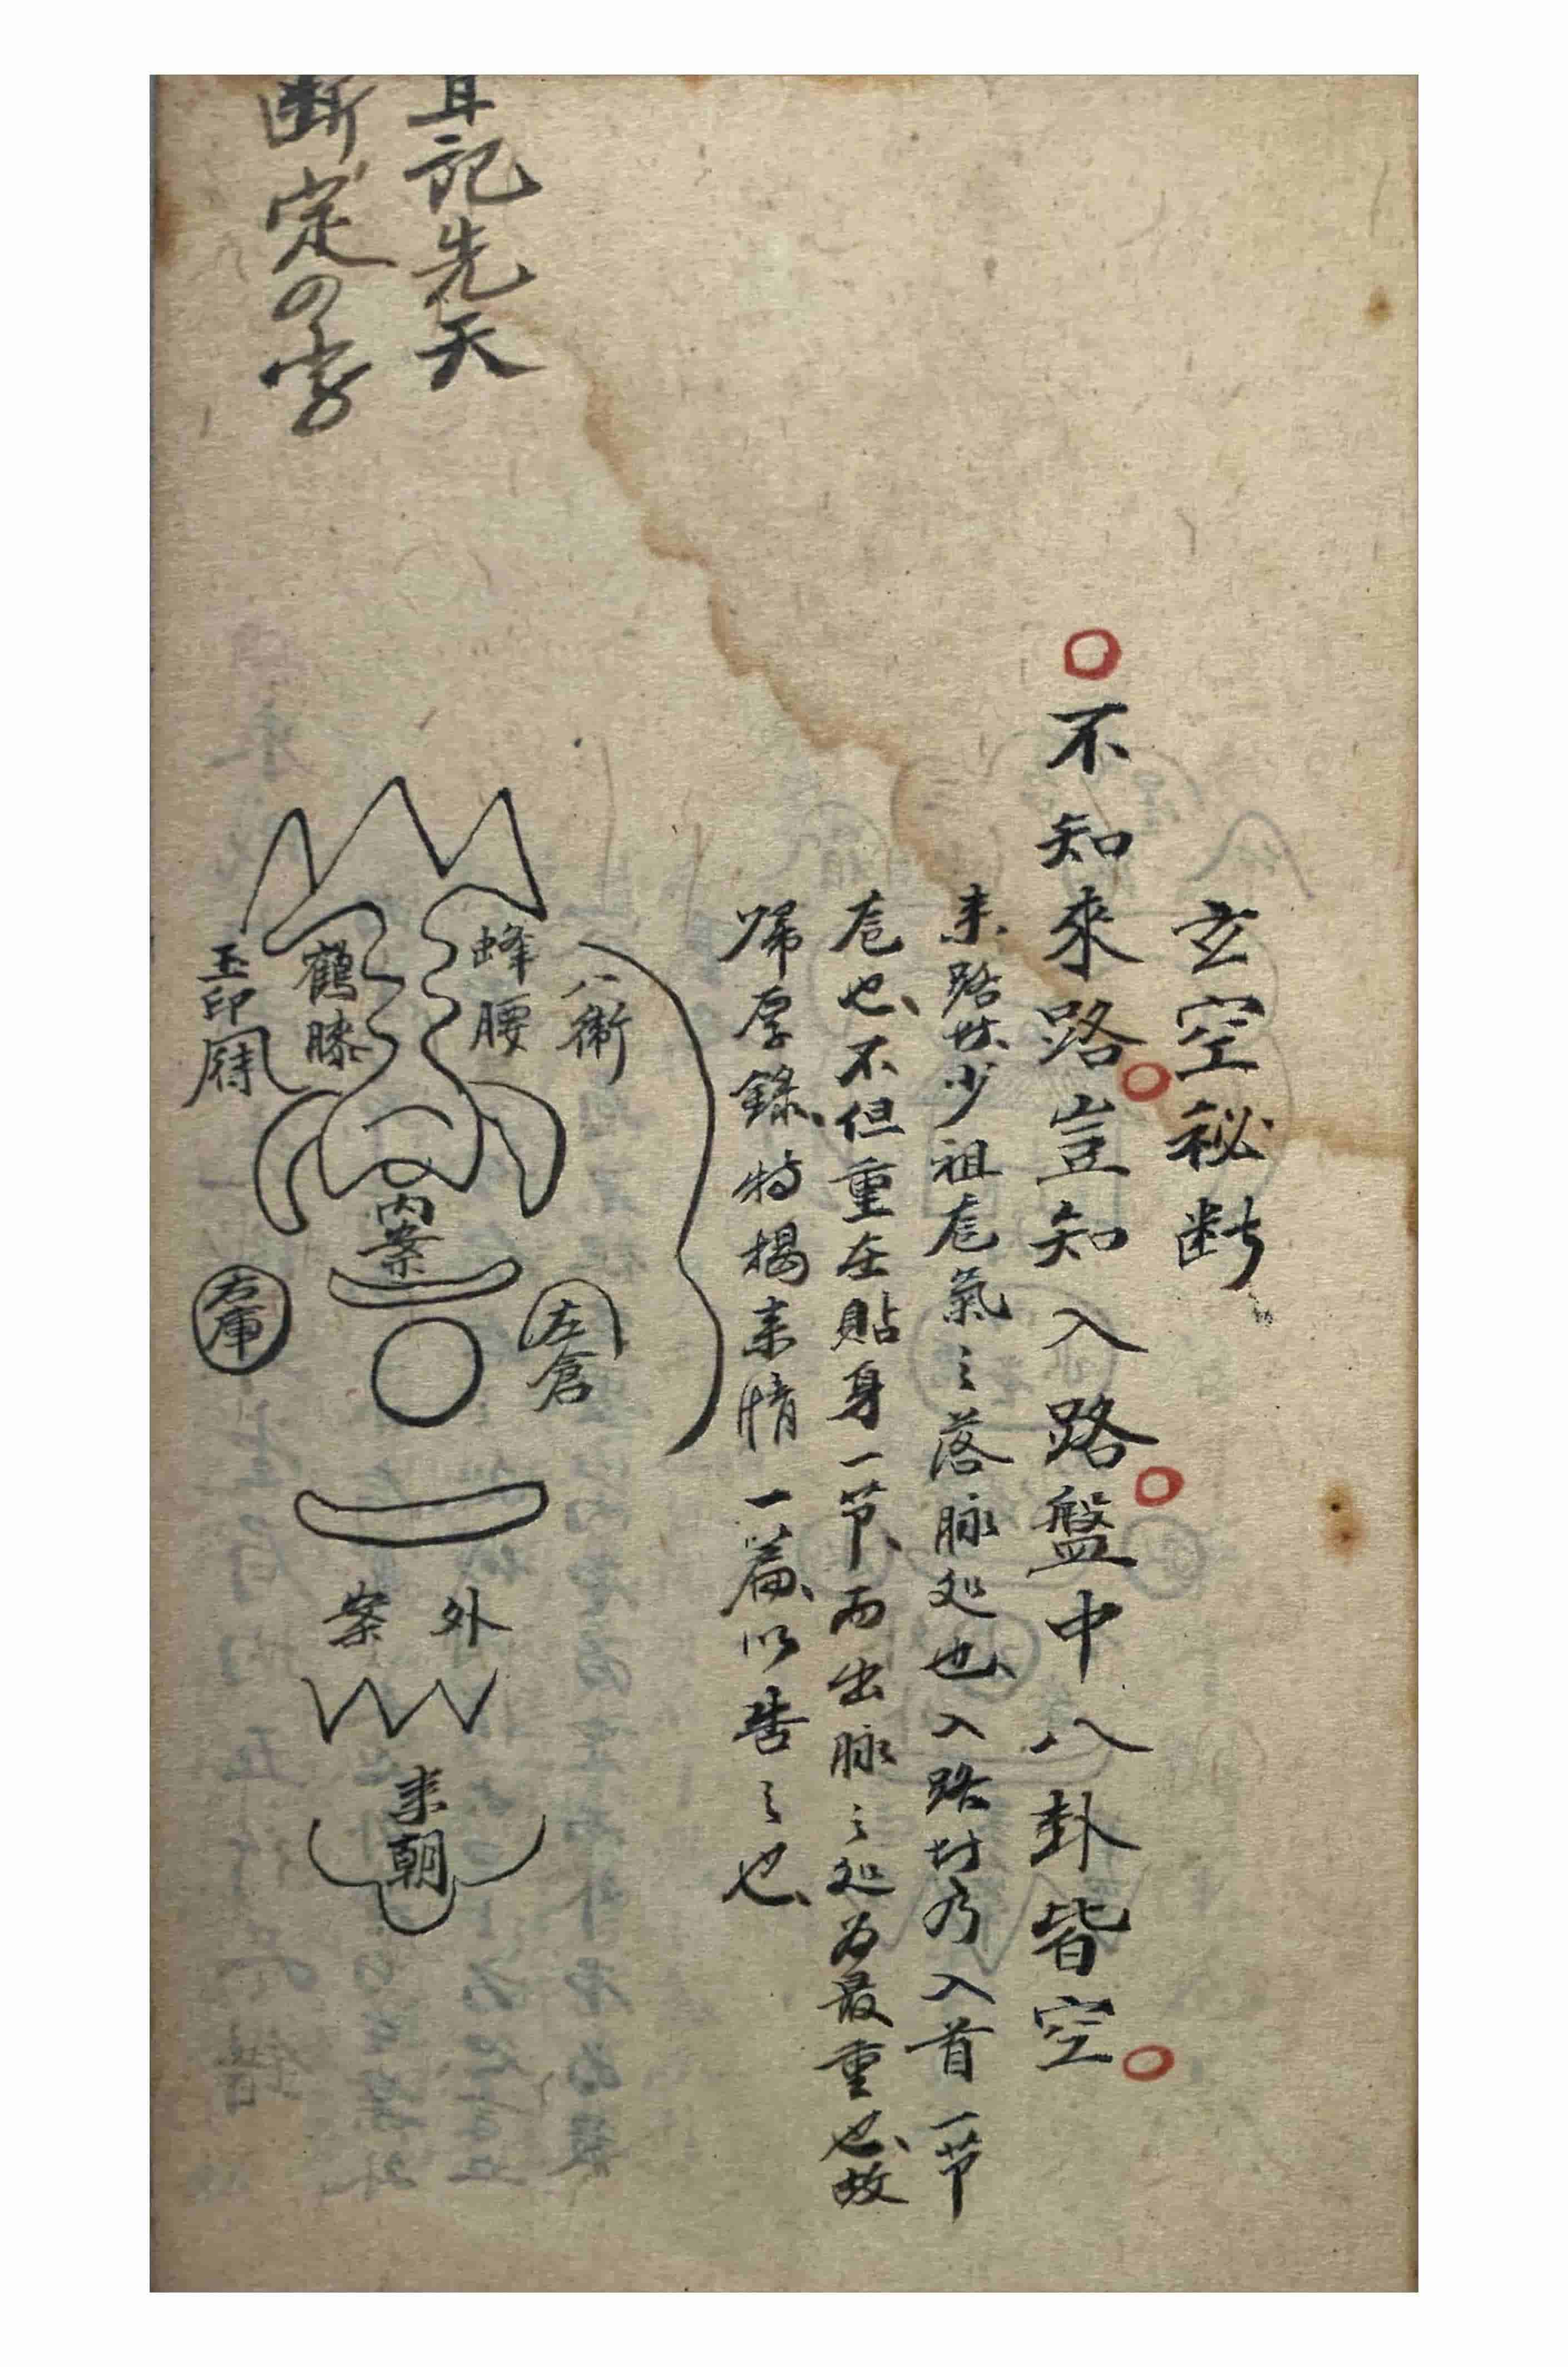 玄空秘断
不知來路。豈知入路。盤中八卦皆空。
来路。世少祖龙氣之落脉処也、入路対乃入首一节
龙也、不但重在貼身一节、而出脉之処为最重也、故
歸厚錄、特揭来情一篇、以告之也、
八衛
蜂腰
鶴膝
玉印
内案
左倉
右庫
外案
来朝
耳記先天
断定の字